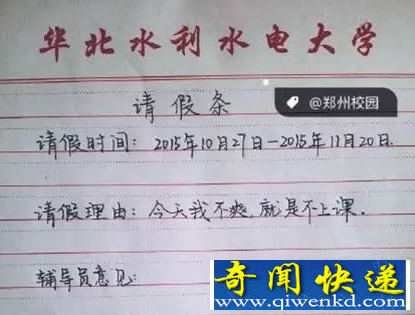 华北水利水电大学
@郑州校园
请假条
请假时间：2015年10月27日—2015年11月20日.
请假理由：今天我不爽，就是不上课.
辅导员意见：
奇闻快递
www.qiwenkd.com